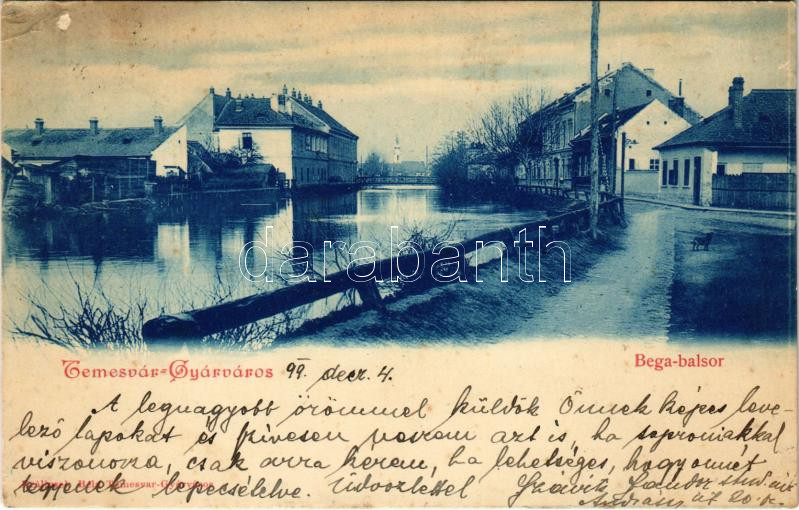 darabanth
Temesvár-Gyárváros 99. decz. 4.
Bega-balsor
A legnagyobb örömmel küldök Önnek képes leve-
lező lapokat és szivesen veszem azt is, ha soproniakkal
viszonozza, csak arra kérem, ha lehetséges, hogy onnét
egyenek lepecsételve. Üdvözlettel
Temesvar-Gyárváros
Andrássy út 20.